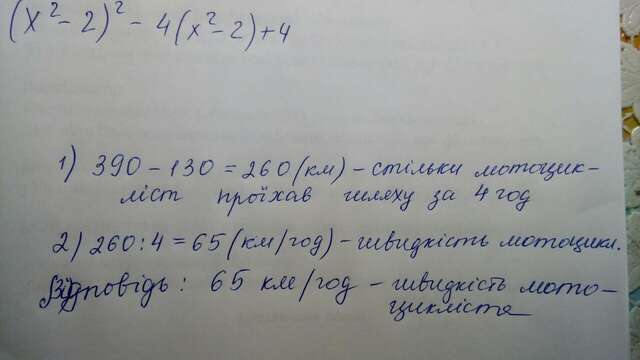 (x² - 2)² - 4(x² - 2) + 4
1) 390 - 130 = 260 (км) - стільки мотоцик-
ліст проїхав шляху за 4 год
2) 260 : 4 = 65 (км/год) - швидкість мотоцикл.
Відповідь : 65 км/год - швидкість мото-
цикліста